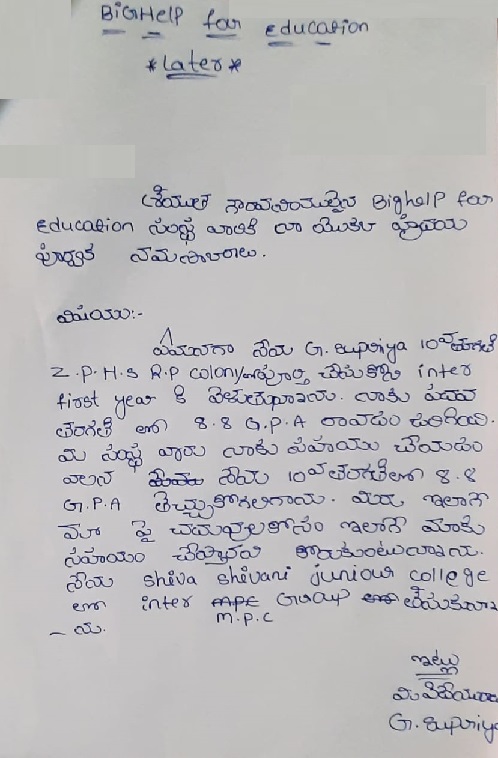 BIGHelp for educasion
*Later*
శ్రీయుత గౌరవనీయులైన Bighelp for
educasion సంస్థ వారికి నా యొక్క హృదయ
పూర్వక నమస్కారాలు.
విషయం:-
అనగా నేను G. supriya 10వ తరగతి
Z.P.H.S R.P colony పూర్తి చేసుకొని inter
first year కి వెళుతున్నాను. నాకు పదవ
తరగతి లో 8.8 G.P.A రావడం జరిగింది.
మీ సంస్థ వారు నాకు సహాయం చేయడం
వలన నేను 10వ తరగతిలో 8.8
G.P.A తెచ్చుకోగలిగాను. మీరు ఇలాగే
మా పై చదువులకోసం ఇలాగే మాకు
సహాయం చేస్తారని కోరుకుంటున్నాను.
నేను shiva shivani juniour college
లో inter M.P.C Group తీసుకున్నా
-ను.
ఇట్లు
మీ విధేయురా
G. supriya